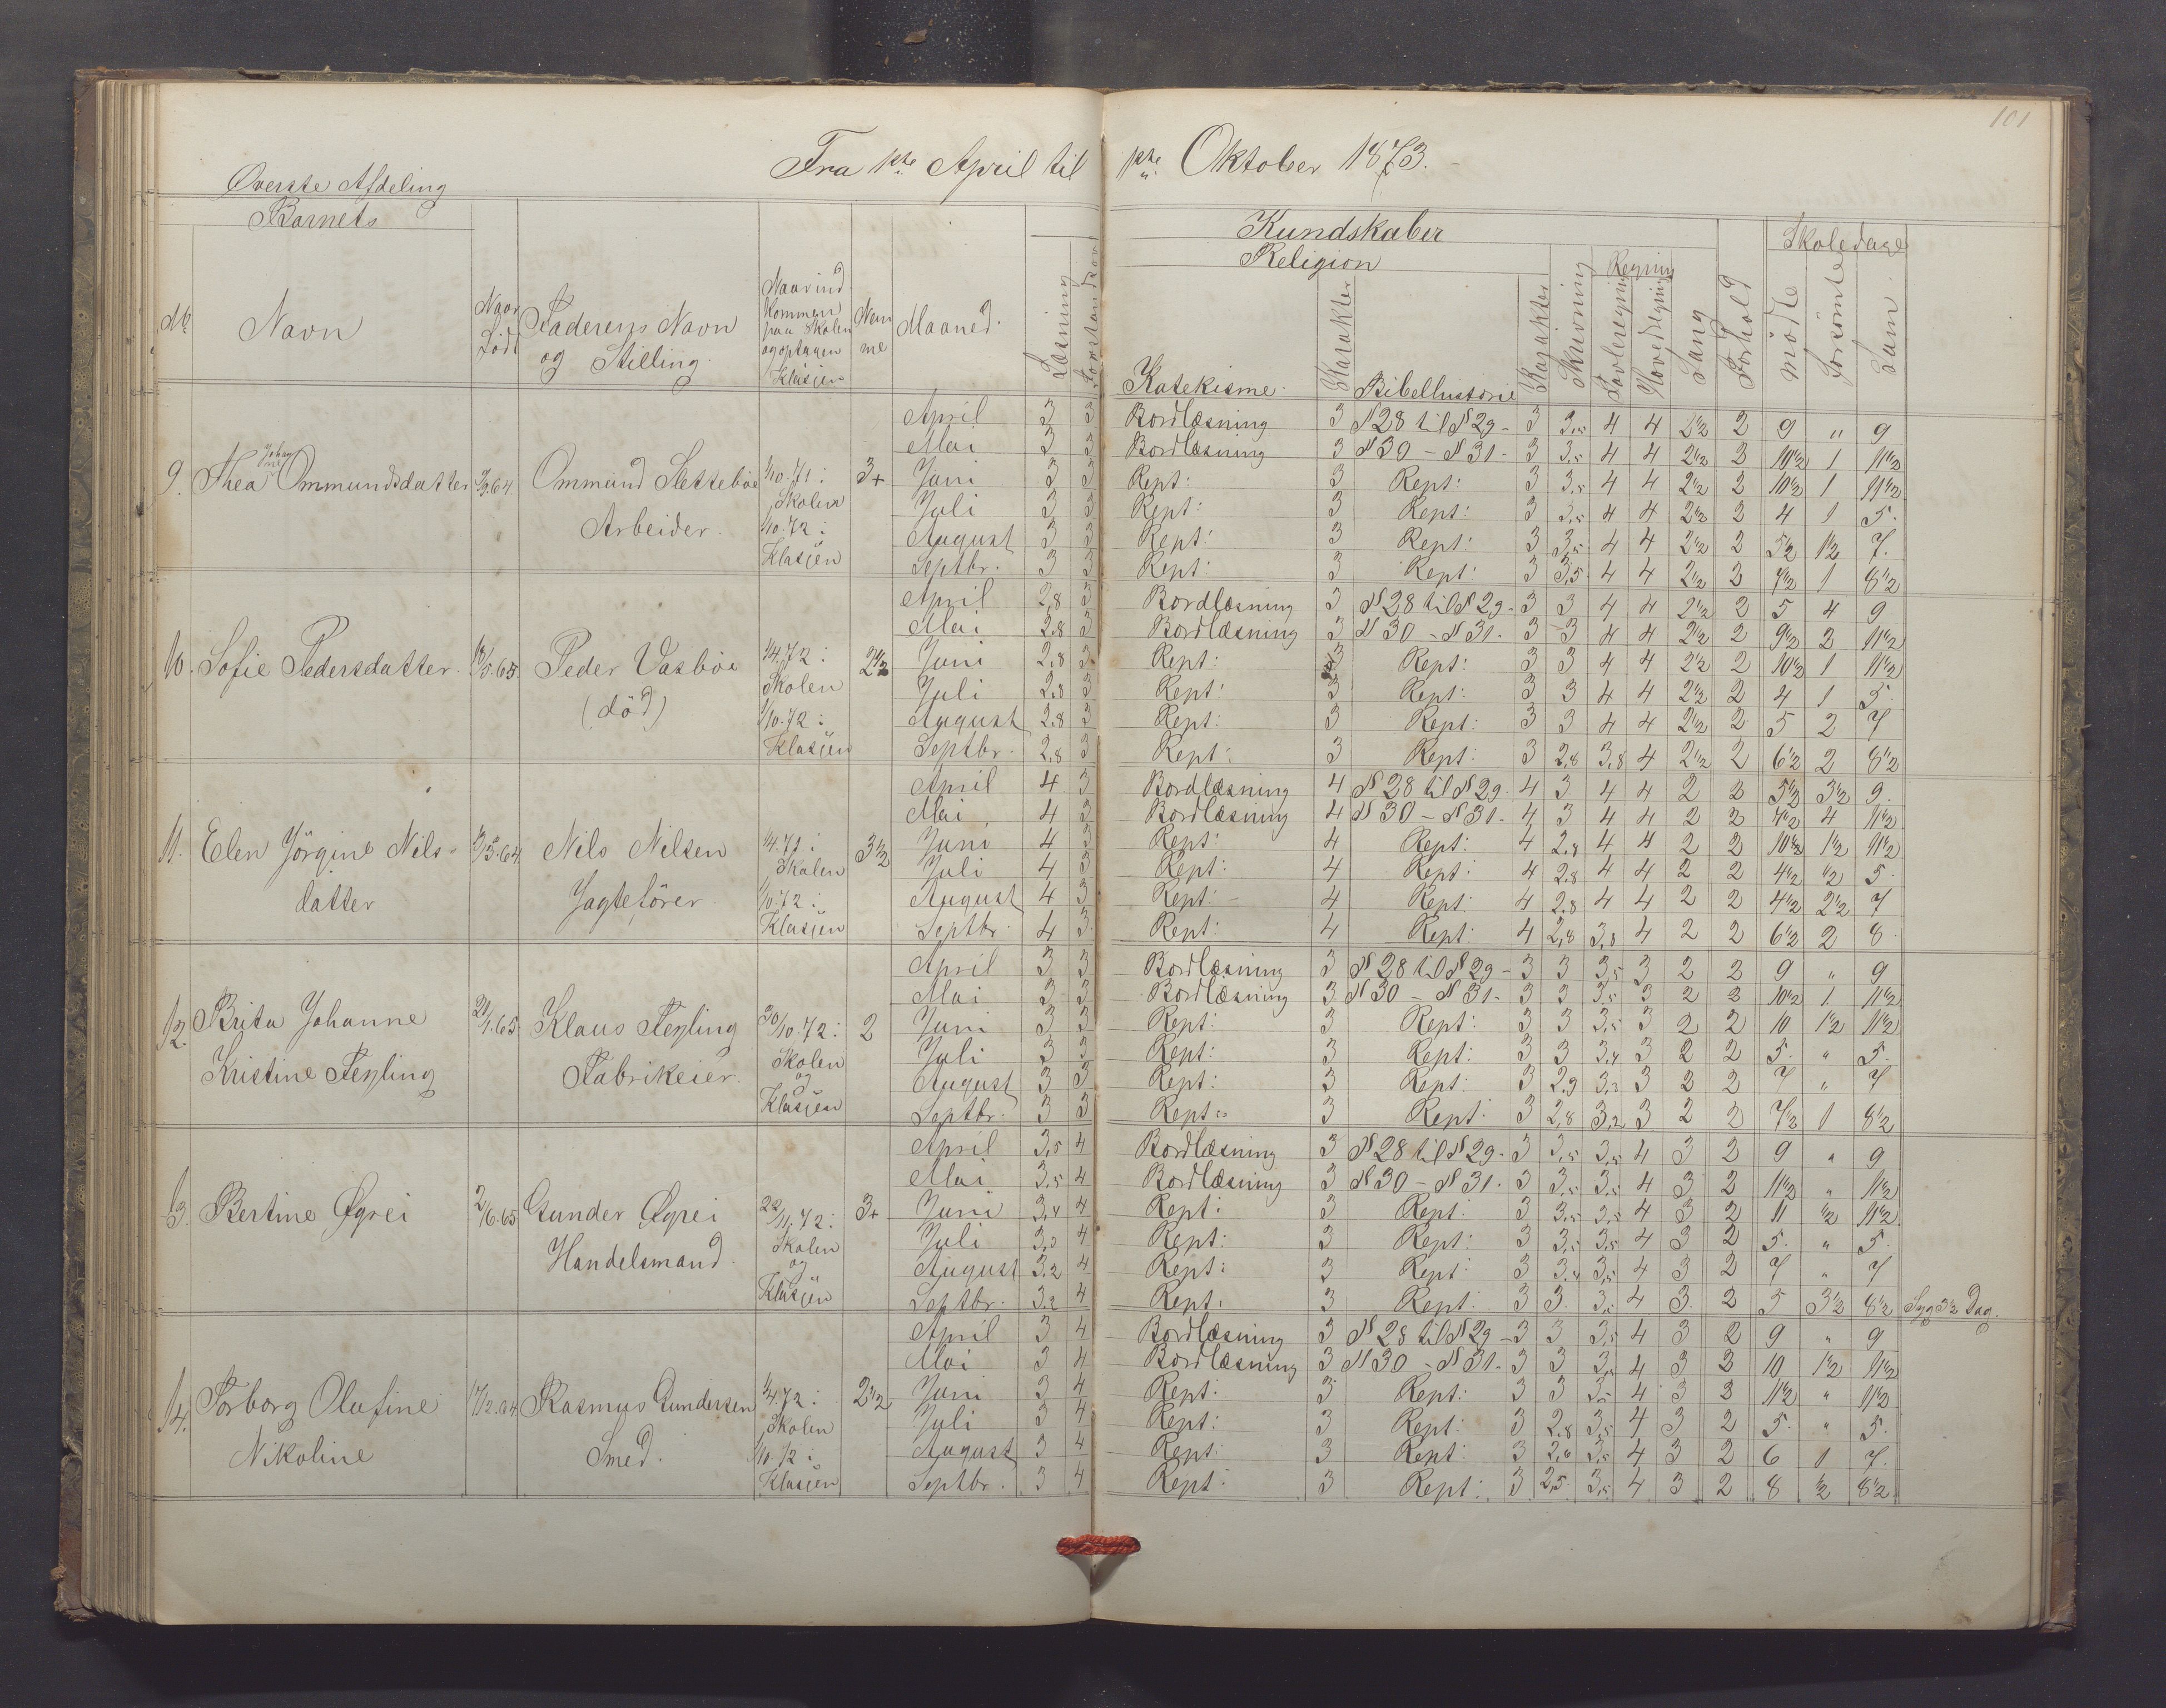 101
Fra 1ste April til 1ste Oktober 1873.
Øverste Afdeling
Barnets
Kundskaber
Skoledage
Religion
Regning
No Navn Naar Født Faderens Navn og Stilling. Naar indkommen paa Skolen og optagen i Klassen Nemme Maaned. Læsning Katekisme. Karakter Bibelhistorie Karakter Skrivning Tavleregning Hovedregning Sang Forhold mødte forsømte Sam.
April 3 3 Bordlæsning 3 § 28 til § 29 - 3 3,5 4 4 2½ 2 9 " 9
Mai 3 3 Bordlæsning 3 § 30 - § 31 - 3 3,5 4 4 2½ 2 10½ 1 11½
9. Thea Johanne Ommundsdatter Ommund Slettebøe 1/10.71 i 3+ Juni 3 3 Rept: 3 Rept: 3 3,5 4 4 2½ 2 10½ 1 11½
Skolen Juli 3 3 Rept: 3 Rept: 3 3,5 4 4 2½ 2 4 1 5.
Arbeider. 1/10.72 i August 3 3 Rept: 3 Rept: 3 3,5 4 4 2½ 2 5½ 1½ 7.
Klassen Septbr. 3 3 Rept: 3 Rept: 3 3,5 4 4 2½ 2 7½ 1 8½
April 2,8 3 Bordlæsning 3 § 28 til § 29 - 3 3 4 4 2½ 2 5 4 9
Mai 2,8 3 Bordlæsning 3 § 30 - § 31 - 3 3 4 4 2½ 2 9½ 2 11½
10. Sofie Pedersdatter. Peder Vasbøe 1/4.72 i 2½ Juni 2,8 3 Rept: 3 Rept: 3 3 4 4 2½ 2 10½ 1 11½
Skolen Juli 2,8 3 Rept: 3 Rept: 3 3 4 4 2½ 2 4 1 5.
(død) 1/10.72 i August 2,8 3 Rept: 3 Rept: 3 3 4 4 2½ 2 5 2 7
Klassen Septbr. 2,8 3 Rept: 3 Rept: 3 2,8 3,8 4 2½ 2 6½ 2 8½
April 4 3 Bordlæsning 4 § 28 til § 29 - 4 3 4 4 2 2 5½ 3½ 9.
Mai 4 3 Bordlæsning 4 § 30 - § 31 - 4 3 4 4 2 2 7½ 4 11½
11. Elen Jörgine Nils- Nils Nilsen 1/4.71 i 3½ Juni 4 3 Rept: 4 Rept: 4 2,8 4 4 2 2 10½ 1½ 11½
Skolen Juli 4 3 Rept: 4 Rept: 4 2,8 4 4 2 2 4½ ½ 5.
datter Jagtefører. 1/10.72 i August 4 3 Rept: 4 Rept: 4 2,8 4 4 2 2 4½ 2½ 7
Klassen Septbr. 4 3 Rept: 4 Rept: 4 2,8 3,8 4 2 2 6½ 2 8
April 3 3 Bordlæsning 3 § 28 til § 29 - 3 3 3,5 3 2 2 9 " 9
Mai 3 3 Bordlæsning 3 § 30 - § 31 - 3 3 3,5 3 2 2 10½ 1 11½
12. Brita Johanne 21/1.65 Klaus Feyling 30/10.72 i 2 Juni 3 3 Rept: 3 Rept: 3 3 3,5 3 2 2 10 1½ 11½
Skolen Juli 3 3 Rept: 3 Rept: 3 3 3,4 3 2 2 5. " 5.
Kristine Feyling Fabrikeier. og August 3 3 Rept: 3 Rept: 3 2,9 3,3 3 2 2 7 " 7
Klassen Septbr. 3 3 Rept: 3 Rept: 3 2,8 3,2 3 2 2 7½ 1 8½
April 3,5 4 Bordlæsning 3 § 28 til § 29 - 3 3,5 3,5 4 3 2 9 " 9
Mai 3,5 4 Bordlæsning 3 § 30 - § 31 - 3 3,5 3,5 4 3 2 11½ " 11½
13. Bertine Øgrei 2/6.65 Gunder Øgrei 22/11.72 i 3+ Juni 3,4 4 Rept: 3 Rept: 3 3,5 3,5 4 3 2 11 ½ 11½
Skolen Juli 3,3 4 Rept: 3 Rept: 3 3,5 3,5 4 3 2 5. " 5.
Handelsmand og August 3,2 4 Rept: 3 Rept: 3 3,4 3,5 4 3 2 7 " 7
Klassen Septbr. 3,2 4 Rept: 3 Rept: 3 3. 3,5 4 3. 2 5 3½ 8½ Syg 3½ Dag.
April 3 4 Bordlæsning 3 § 28 til § 29 - 3 3 3,5 4 3 2 9 " 9
Mai 3 4 Bordlæsning 3 § 30 - § 31 - 3 3 3,5 4 3 2 10 1½ 11½
14. Torborg Olufine Rasmus Gundersen 1/4.72 i 2½ Juni 3 4 Rept: 3 Rept: 3 3 3,5 4 3 2 11½ " 11½
Skolen Juli 3 4 Rept: 3 Rept: 3 2,8 3,5 4 3 2 5. " 5.
Nikoline Smed. 1/10.72 i August 3 4 Rept: 3 Rept: 3 2,6 3,5 4 3 2 6 1 7.
Klassen Septbr. 3 4 Rept: 3 Rept: 3 2,5 3,5 4 3 2 8 ½ 8½